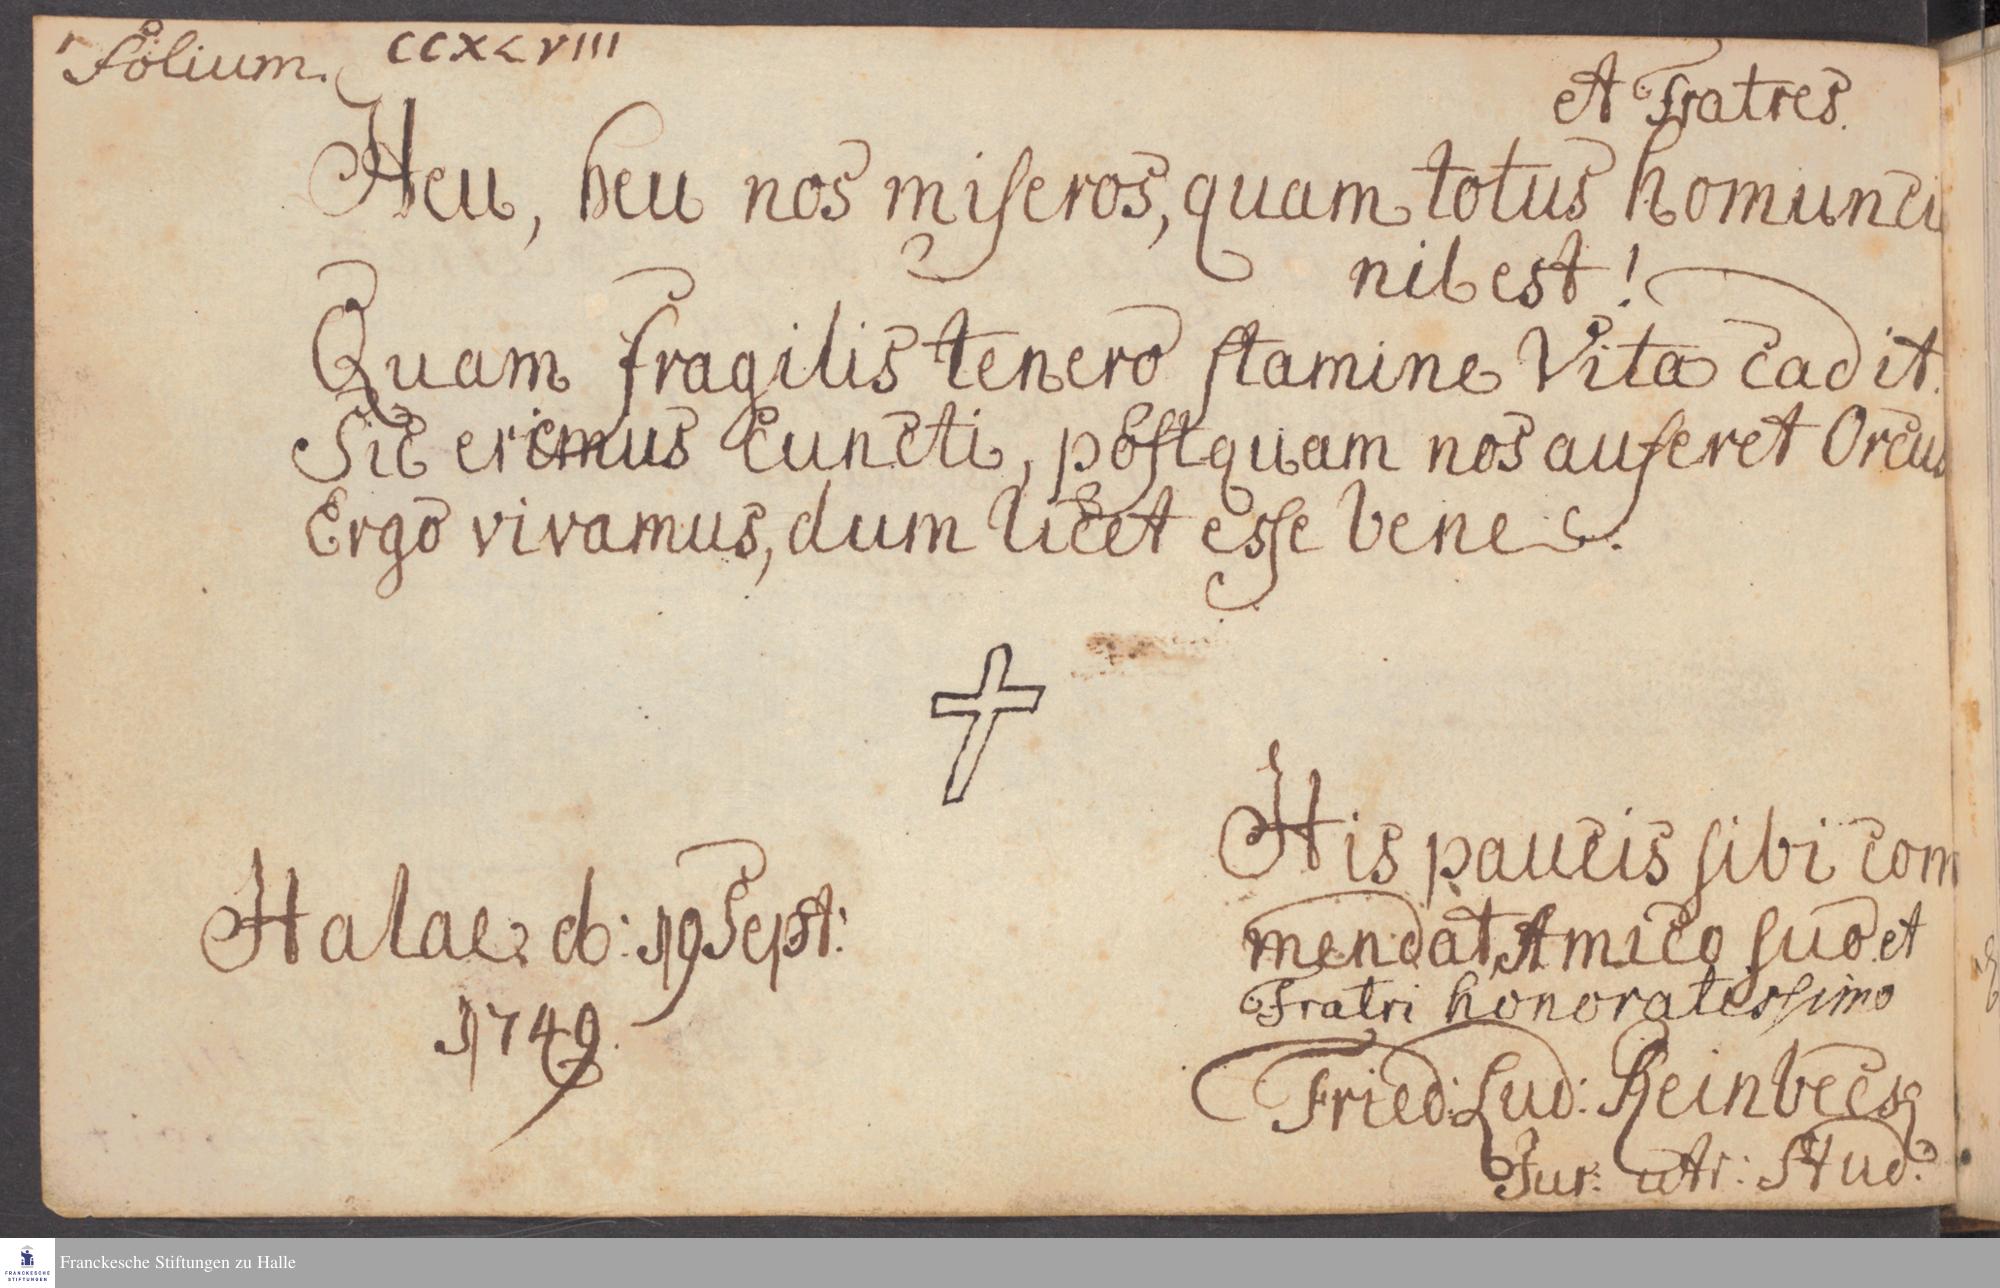 Folium. CCXLVIII
A Fratres.
Heu, heu nos miseros, quam totus homunci
nil est!
Quam fragilis tenero stamine Vita cadit.
Sic erimus cuncti, postquam nos auferet Orcus
Ergo vivamus, dum licet esse bene.
His paucis sibi com
mendat Amico suo et
Fratri honoratissimo
Fried: Lud: Reinbeck
Jur: utr: Stud:
Halae d: 19 Sept:
1749.
Franckesche Stiftungen zu Halle
FRANCKESCHE
STIFTUNGEN